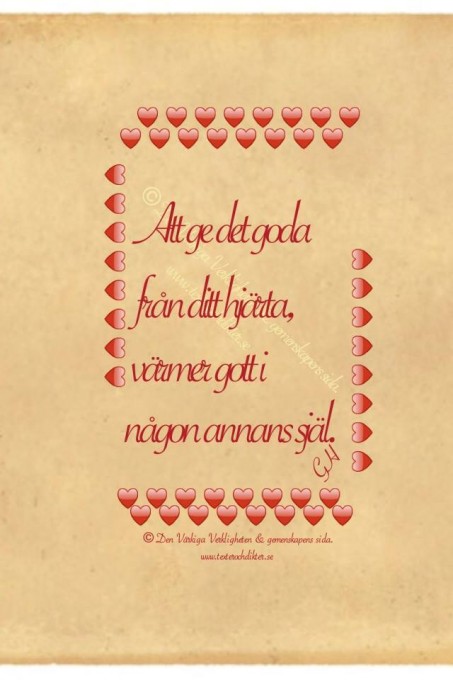 Att ge det goda
från ditt hjärta,
värmer gott i
någon annans själ.
GH
© Den Värkiga Verkligheten & gemenskapens sida.
www.texterochdikter.se